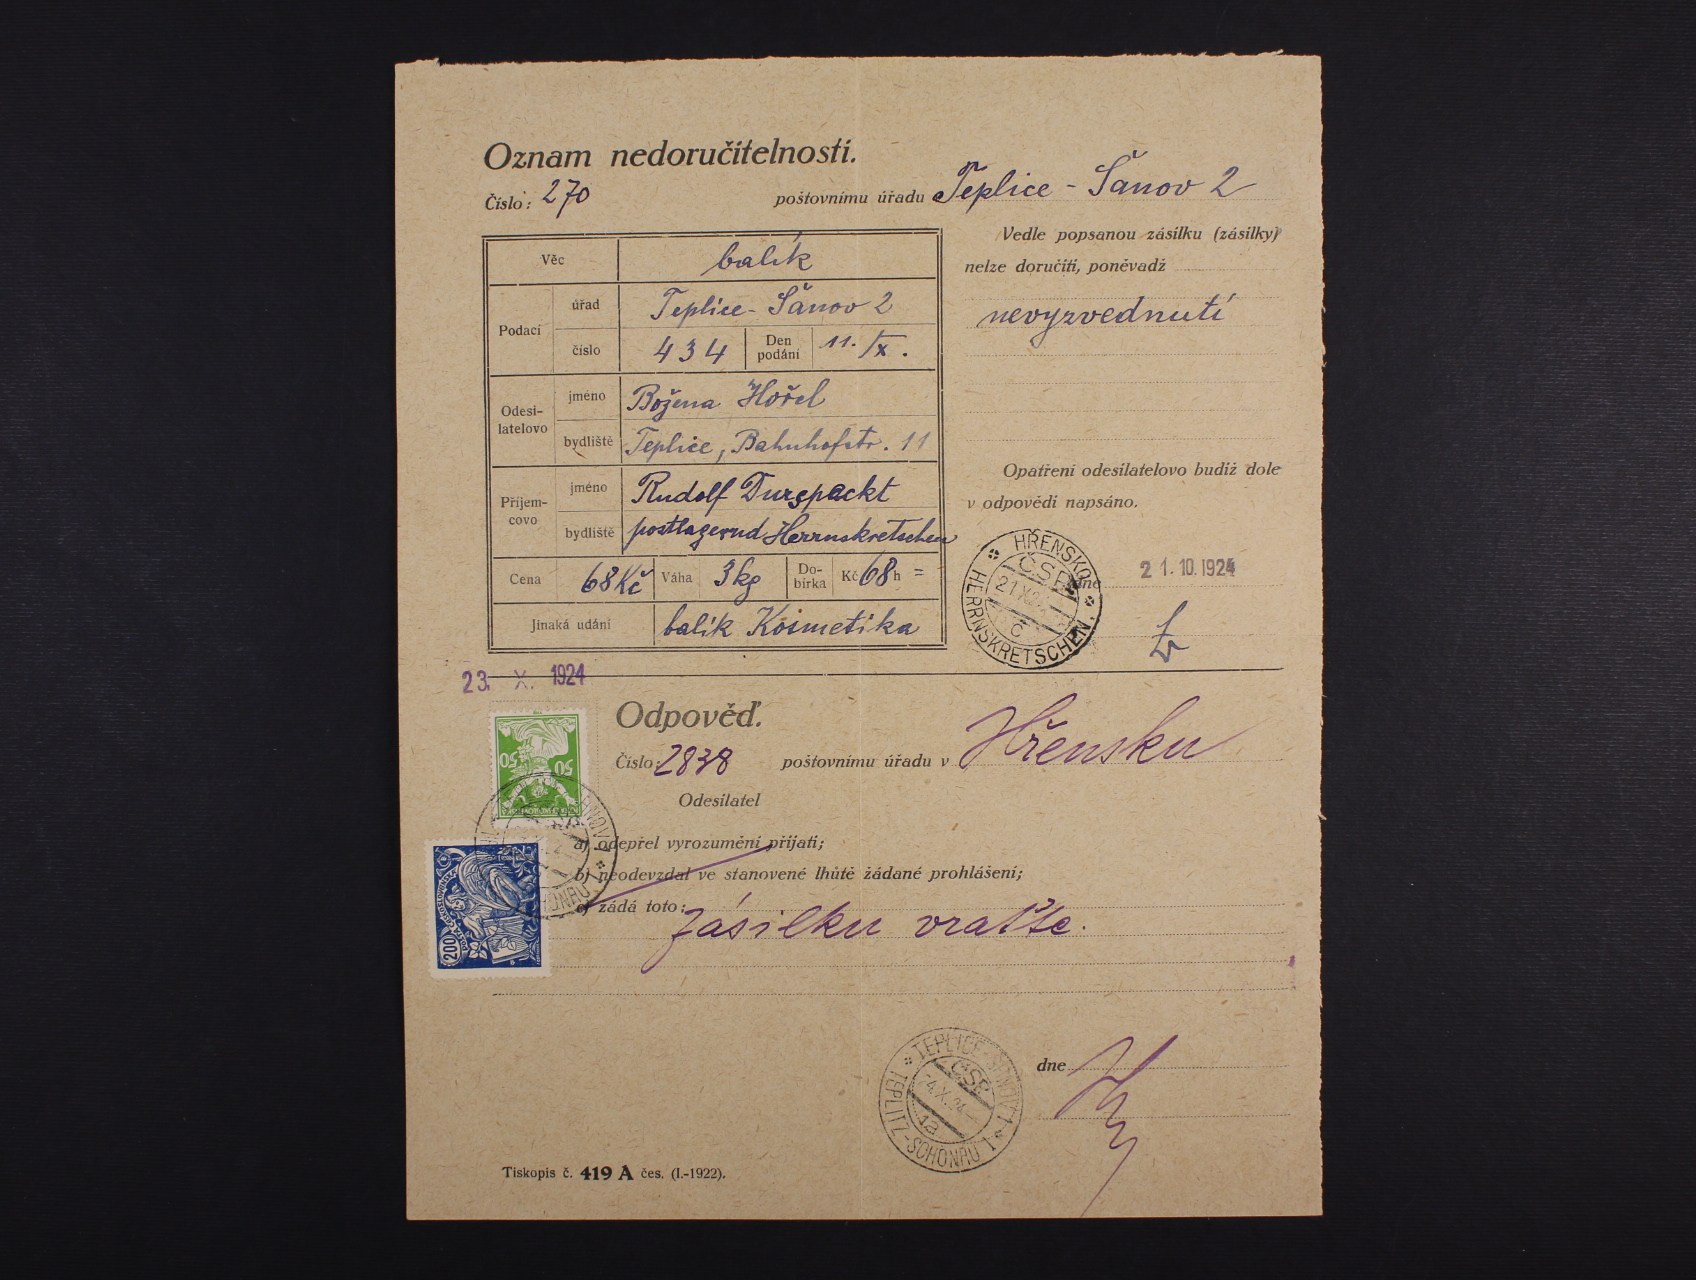 Oznam nedoručitelnosti.
Číslo: 270 poštovnímu úřadu Teplice-Šanov 2
Věc balík
Podací úřad Teplice-Šanov 2
číslo 434 Den podání 11./X.
Odesílatelovo jméno Božena Hořel
bydliště Teplice, Bahnhofstr. 11
Příjemcovo jméno Rudolf Durspackt
bydliště postlagernd Herrnskretschen
Cena 68 Kč Váha 3 kg Dobírka Kč 68 h =
Jinaká udání balík Kosmetika
Vedle popsanou zásilku (zásilky)
nelze doručiti, poněvadž
nevyzvednutí
Opatření odesílatelovo budiž dole
v odpovědi napsáno.
HŘENSKO
ČSP
21.X.24
č
HERRNSKRETSCHEN
dne 21.10.1924
23. X. 1924
Odpověď.
Číslo: 2838 poštovnímu úřadu v Hřensku
Odesílatel
50 50
a) odepřel vyrozumění přijati;
b) neodevzdal ve stanovené lhůtě žádané prohlášení;
c) žádá toto: Zásilku vraťte.
200
dne
TEPLICE-ŠANOV 1
ČSP
24.X.24
1a
TEPLITZ-SCHÖNAU 1
Tiskopis č. 419 A čes. (I.-1922).